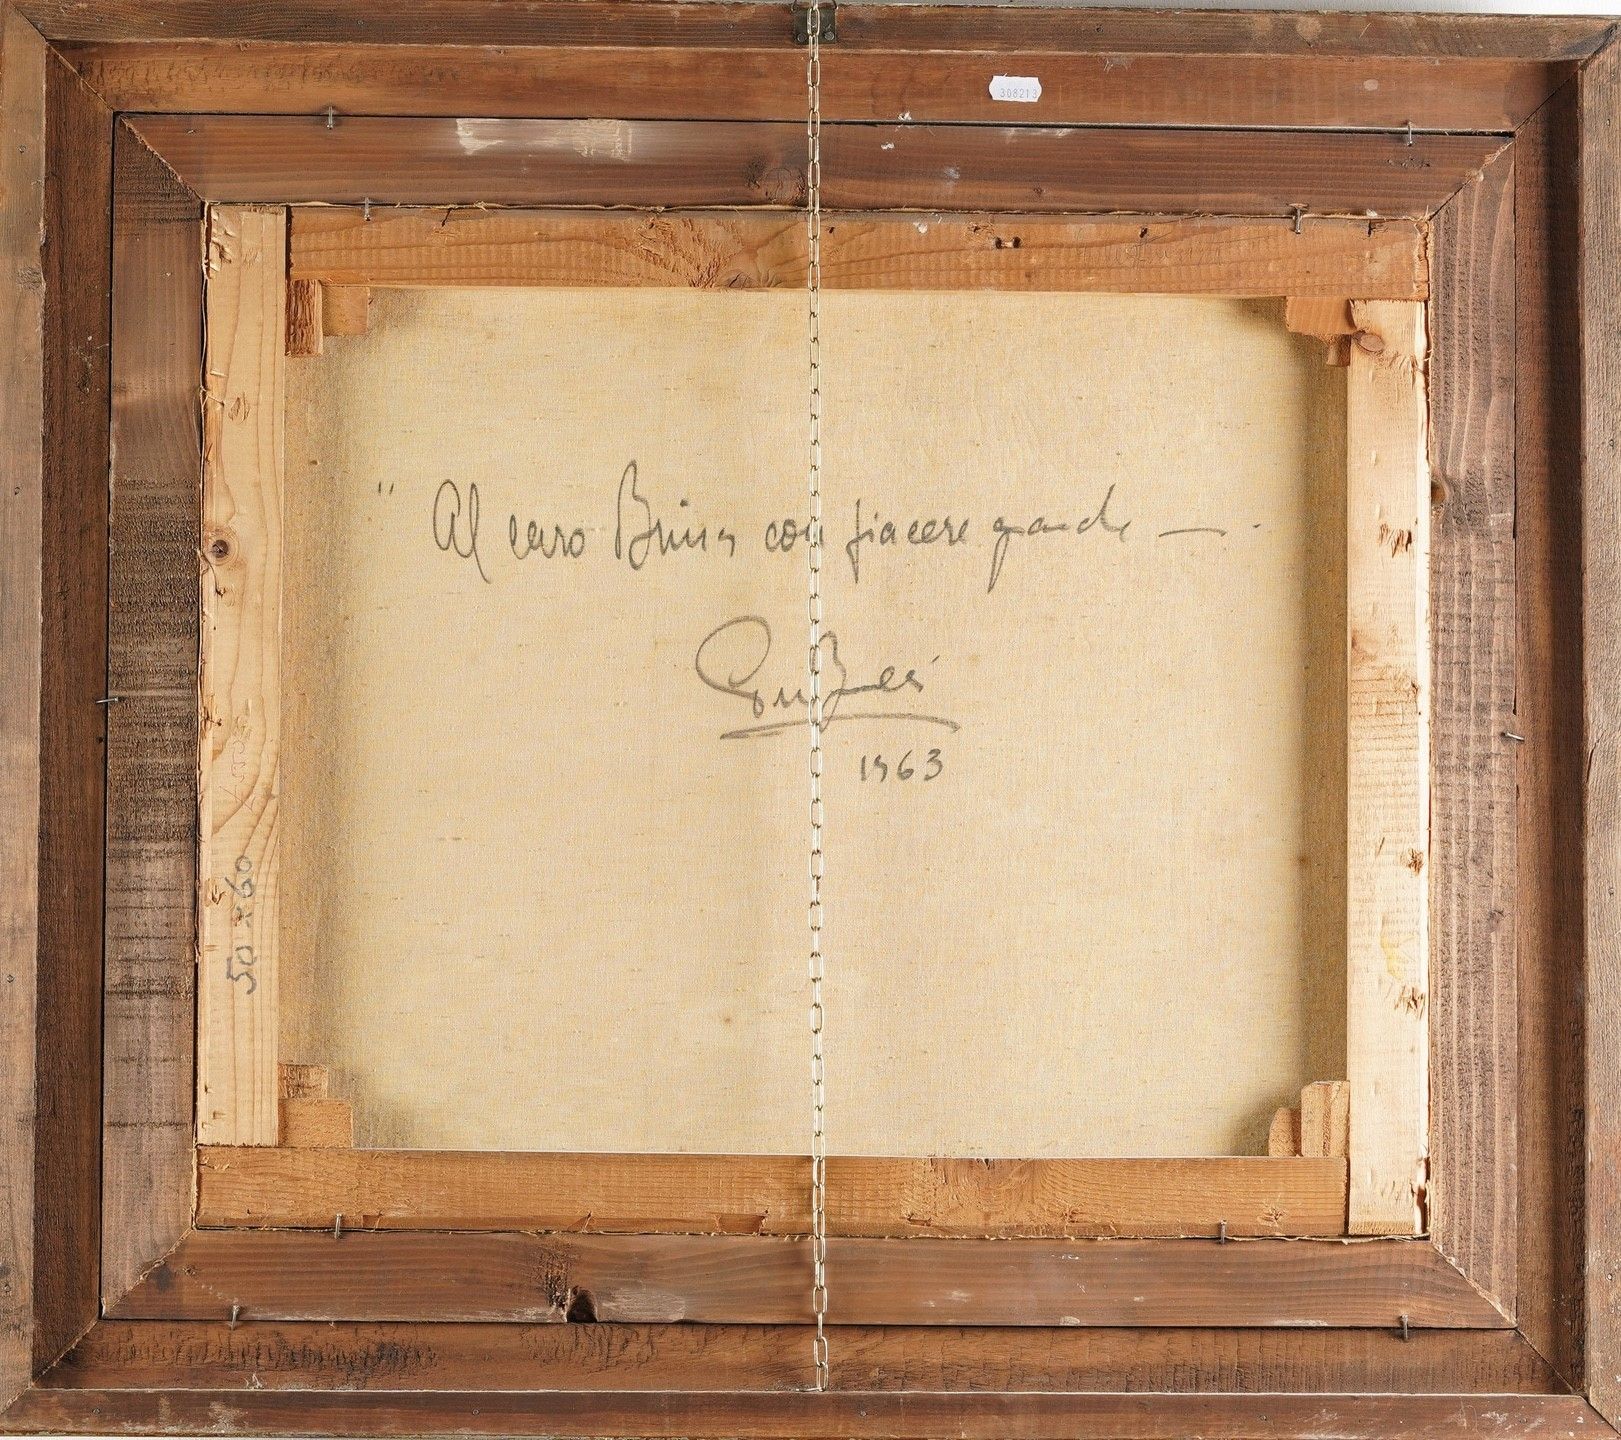 308213
" Al caro Bruno con piacere grande —
1963
50 x 60